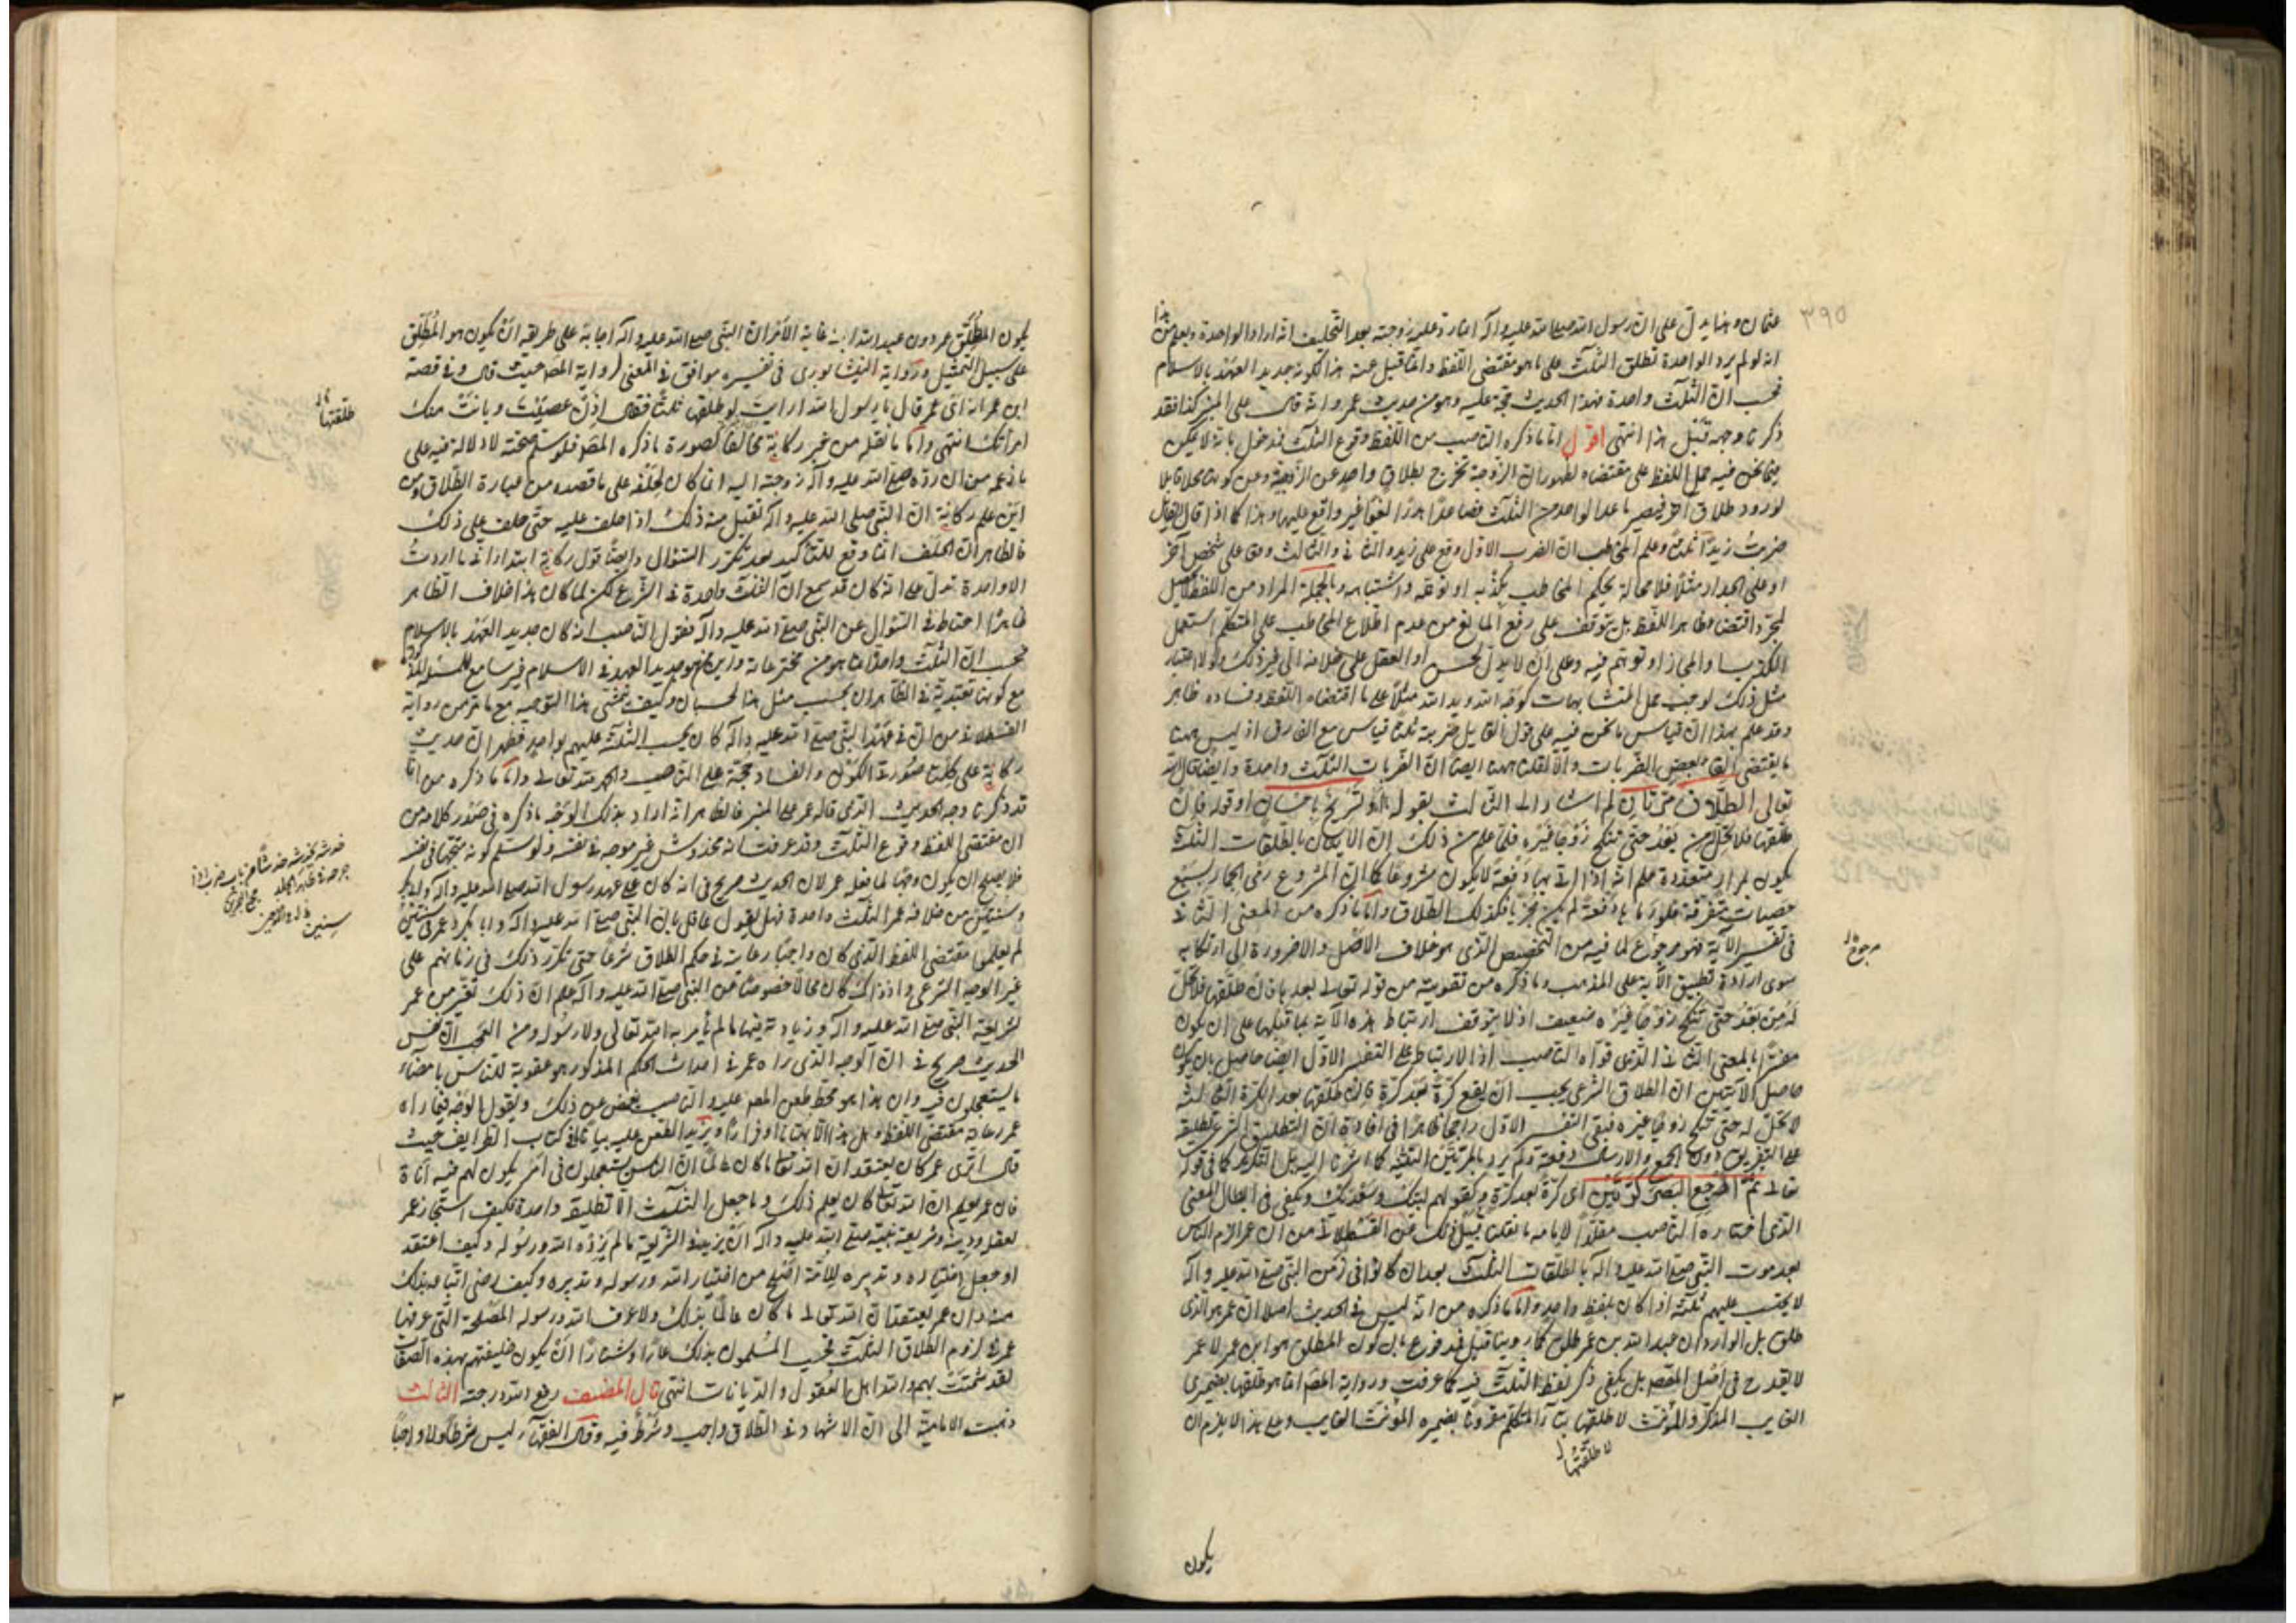 ٣٩٥
عثمان وهذا يدل على ان رسول الله صلى الله عليه وآله انما رد عليه زوجته بعد التحليف انه اراد الواحدة ويعلم من هذا
انه لو لم يرد الواحدة تطلق الثلث على ما هو مقتضى اللفظ وانما قيل عنه هذا لكونه جديد العهد بالاسلام
فحسب ان الثلث واحدة فهذا الحديث حجة عليه وهو من حديث عمر وانه قال على المنبر كذا فقد
ذكرنا وجهه قبل هذا انتهى اقول اما ما ذكره الناصب من اللفظ وقوع الثلث فمدخول بانه لا يمكن
فيما نحن فيه حمل اللفظ على مقتضاه لظهور ان الزوجة تخرج بطلاق واحد عن الزوجية وعن كونها محلا قابلا
لورود طلاق آخر فيصير ما عدا الواحد من الثلث فصاعدا هدرا لغوا غير واقع عليها وهذا كما اذا قال القايل
ضربت زيدا ثلثة وعلم المخاطب ان الضرب الاول وقع على زيد والثاني والثالث وقع على شخص آخر
او على الجدار مثلا فلا محالة يحكم المخاطب بكذبه او غلطه واشتباهه وبالجملة المراد من اللفظ لا يحصل
بمجرد اقتضاء ظاهر اللفظ بل يتوقف على رفع المانع من عدم اطلاع المخاطب على المتكلم استعمل
الكذب والمجاز او توهم فيه وعلى ان لا يدل الحس او العقل على خلافه الى غير ذلك ولو لا اعتبار
مثل ذلك لوجب حمل المتشابهات كوجه الله ويد الله مثلا على ما اقتضاه اللفظ وفساده ظاهر
وقد علم بهذا ان قياس ما نحن فيه على قول القايل ضربته ثلثا قياس مع الفارق اذ ليس ههنا
ما يقتضي الغاء بعض الضربات والا لقلنا ههنا ايضا ان الضربات الثلث واحدة وايضا قال الله
تعالى الطلاق مرتان ثم اشار الى الثالث بقوله او تسريح باحسان او قوله فان
طلقها فلا تحل له من بعد حتى تنكح زوجا غيره فلما علم من ذلك ان الاتيان بالطلقات الثلثة
يكون بمرار متعددة علم انه اذا اتى بها دفعة لا يكون مشروعا كما ان المشروع رمي الجمار بسبع
حصيات متفرقة فلو رماها دفعة لم يكن مجزيا فكذلك الطلاق واما ما ذكره من المعنى الثاني
في تفسير الآية فهو مرجوع لما فيه من التخصيص الذي هو خلاف الاصل ولا ضرورة الى ارتكابه
مرجوح
سوى ارادة تطبيق الآية على المذهب وما ذكره من تقويته من قوله تعالى بعدها فان طلقها فلا تحل
له من بعد حتى تنكح زوجا غيره ضعيف اذ لا يتوقف ارتباط هذه الآية بما قبلها على ان يكون
مفسرا بالمعنى الثاني الذي قواه الناصب اذ الارتباط على التفسير الاول ايضا حاصل بان يكون
حاصل الآيتين ان الطلاق الشرعي يجب ان يقع كرة بعد كرة فان طلقها بعد الكرة الثالثة
لا تحل له حتى تنكح زوجا غيره فبقي التفسير الاول راجحا ظاهرا في افادة ان التطليق الشرعي تطليقة
على التفريق دون الجمع والارسال دفعة ولم يرد بالمرتين التثنية كما اشرنا اليه بل التكرير كما في قوله
تعالى ثم ارجع البصر كرتين اي كرة بعد كرة وكقولهم لبيك وسعديك ويكفي في ابطال المعنى
الذي اختاره الناصب مقلدا لامامه ما نقلنا قبيل ذلك عن القسطلاني من ان عمر الزم الناس
بعد موت النبي صلى الله عليه وآله بالطلقات الثلث بعد ان كانوا في زمن النبي صلى الله عليه وآله
لا يحتسب عليهم ثلثة اذا كان بلفظ واحد واما ما ذكره من انه ليس في الحديث اصلا ان عمر هو الذي
طلق بل الوارد ان عبد الله بن عمر طلق كما روينا قبل فمدفوع بان كون المطلق هو ابن عمر لا عمر
لا يقدح في اصل المقصود بل يكفي ذكر لفظ الثلث فيه كما عرفت ورواية المصنف انما هو طلقها بضميري
الغايب المذكر والمؤنث لا طلقتها بتاء المتكلم مقرونا بضميره المؤنث الغايب وعلى هذا لا يلزم ان
لا طلقتها
يكون
يكون المطلق عمر دون عبد الله ابنه غاية الامر ان النبي صلى الله عليه وآله اجابه على طريقة ان يكون هو المطلق
على سبيل التمثيل ورواية النيشابوري في تفسيره موافق في المعنى لرواية المصنف حيث قال وفي قصة
ابن عمر انه اتى عمر قال يا رسول الله ارايت لو طلقها ثلثا فقال اذن عصيت وبانت منك
طلقتها
امراتك انتهى واما ما نقله من خبر ركانة مخالفا لصورة ما ذكره المصنف فلو سلم صحته لا دلالة فيه على
ما زعمه من ان رده صلى الله عليه وآله زوجته اليه انما كان لحلفه على ما قصده من عبارة الطلاق ومن
اين علم ركانة ان النبي صلى الله عليه وآله يقبل منه ذلك اذا حلف عليه حتى حلف على ذلك
فالظاهر ان الحلف انما وقع للتاكيد بعد تكرر السؤال وايضا قول ركانة ابتداء اني ما اردت
الا واحدة تدل على انه كان قد سمع ان الثلث واحدة في الشرع لكن لما كان هذا خلاف الظاهر
ظاهرا احتاط في السؤال عن النبي صلى الله عليه وآله فقول الناصب انه كان جديد العهد بالاسلام
فحسب ان الثلث واحدة انما هو من مخترعاته واين لجديد العهد في الاسلام فيرسا مع المسئلة
مع كونها تعبدية في الظاهر ان يحسب مثل هذا الحسبان وكيف يتمشى هذا التوجيه مع ما مر من رواية
القسطلاني من ان في عهد النبي صلى الله عليه وآله كان يحسب الثلثة عليهم بواحد فظهر ان حديث
ركانة على كلتا صورة الكون والفساد حجة على الناصب والحمد لله تعالى واما ما ذكره من انا
قد ذكرنا وجه الحديث الذي قاله عمر على المنبر فالظاهر انه اراد بذلك الوجه ما ذكره في صدر كلامه من
ان مقتضى اللفظ وقوع الثلث وقد عرفت انه مخدوش غير موجه في نفسه ولو سلم كونه متجها في نفسه
فلا يصلح ان يكون وجها لما فعله عمر لان الحديث صريح في انه كان على عهد رسول الله صلى الله عليه وآله وابي بكر
وسنتين من خلافة عمر الثلث واحدة فهل يقول عاقل بان النبي صلى الله عليه وآله وابا بكر وعمر في سنتين
سنين
لم يعلموا مقتضى اللفظ الذي كان واجبا رعايته في حكم الطلاق شرعا حتى تكرر ذلك في زمانهم على
غير الوجه الشرعي واذ ذاك كان محالا خصوصا من النبي صلى الله عليه وآله علم ان ذلك تغير من عمر
لشريعة النبي صلى الله عليه وآله وزيادته فيها ما لم يأمر به الله تعالى ولا رسوله ومن العجب ان نفس
الحديث صريح في ان الوجه الذي رآه عمر في احداث الحكم المذكور هو عقوبة للناس بامضاء
ما يستعجلون فيه وان هذا هو محط طعن المصنف عليه والناصب يغمض عن ذلك ويقول الوجه فيما رآه
عمر رعاية مقتضى اللفظ وهل هذا الا بهتانا وافتراء ويزيد الطعن عليه بيانا ما في كتاب الطرايف حيث
قال اترى عمر كان يعتقد ان الله تعالى ما كان عالما ان الناس يستعجلون في امر يكون لهم فيه اناة
فان عمر يعلم ان الله تعالى كان يعلم ذلك وما جعل الثلث الا تطليقة واحدة فكيف استجاز عمر
لعقله ودينه وشريعة نبيه صلى الله عليه وآله ان يزيد في الشريعة ما لم يزده الله ورسوله وكيف اعتقد
او جعل اختياره وتدبيره للامة اصلح من اختيار الله ورسوله وتدبيره وكيف رضي اتباعه بذلك
منه وان عمر يعتقد ان الله تعالى ما كان عالما بذلك ولا عرف الله ورسوله المصلحة التي عرفها
عمر في لزوم الطلاق الثلث فحسب المسلمون بذلك عارا وشنارا ان يكون خليفتهم بهذه الصفات
لقد شمتت بهم والله اهل العقول والديانات انتهى قال المصنف رفع الله درجته الثالث
ذهبت الامامية الى ان الاشهاد في الطلاق واجب وشرط فيه وقال الفقهاء ليس شرطا ولا واجبا